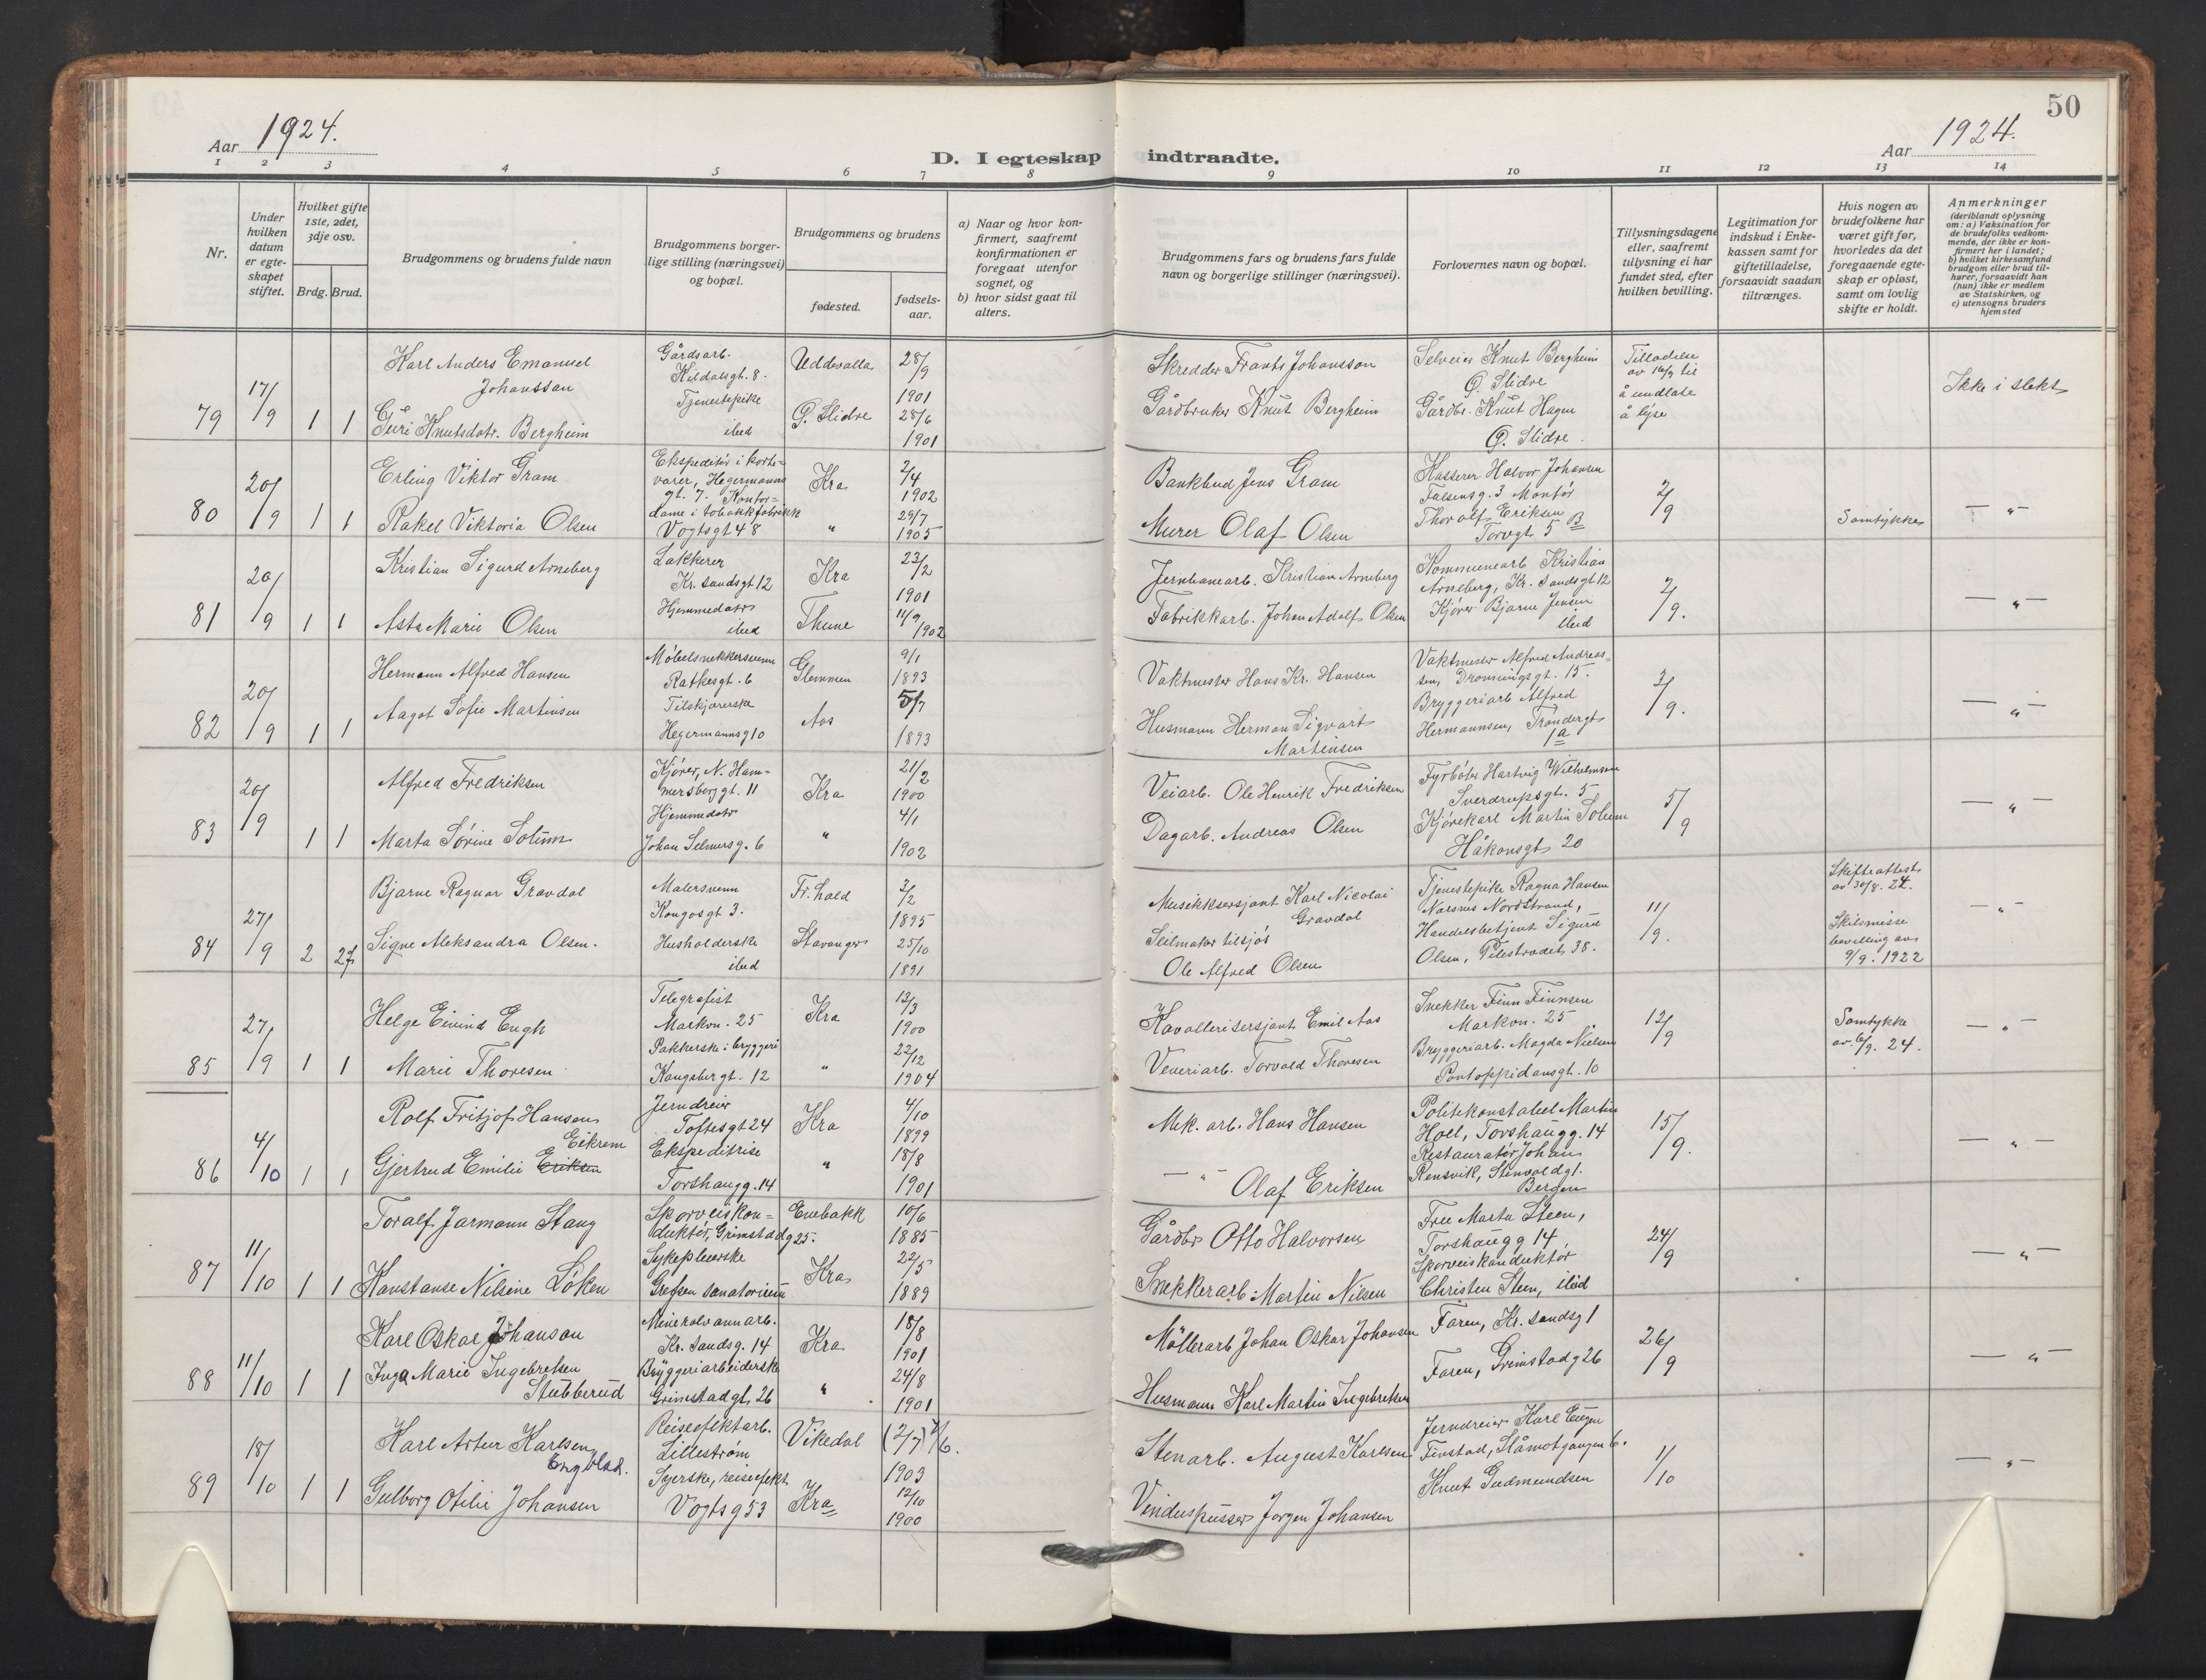 50
Aar 1924.
Aar 1924.
D. I egteskap indtraadte.
1 2 3 4 5 6 7 8 9 10 11 12 13 14
Nr.
Under hvilken datum er egte-skapet stiftet.
Hvilket gifte 1ste, 2det, 3dje osv.
Brdg. Brud.
Brudgommens og brudens fulde navn
Brudgommens borger-lige stilling (næringsvei) og bopæl.
Brudgommens og brudens
fødested.
fødsels-aar.
a) Naar og hvor kon-firmert, saafremt konfirmationen er foregaat utenfor sognet, og
b) hvor sidst gaat til alters.
Brudgommens fars og brudens fars fulde navn og borgerlige stillinger (næringsvei).
Forlovernes navn og bopæl.
Tillysningsdagene eller, saafremt tillysning ei har fundet sted, efter hvilken bevilling.
Legitimation for indskud i Enke-kassen samt for giftetilladelse, forsaavidt saadan tiltrænges.
Hvis nogen av brudefolkene har været gift før, hvorledes da det foregaaende egte-skap er opløst, samt om lovlig skifte er holdt.
Anmerkninger
(deriblandt oplysning om: a) Vaksination for de brudefolks vedkom-mende, der ikke er kon-firmert her i landet; b) hvilket kirkesamfund brudgom eller brud til-hører, forsaavidt han (hun) ikke er medlem av Statskirken, og c) utensogns bruders hjemsted
79 17/9 1 1
Karl Anders Emanuel
Johanssan
Guri Knutsdatr. Bergheim
Gårdsarb.
Kildalsgt. 8.
Tjenestepike
ibid
Uddevalla
Ø. Slidre
28/9
1901
28/6
1901
Skredder Frants Johansson
Gårdbruker Knut Bergheim
Selveier Knut Bergheim
Ø. Slidre
Gårdbr. Knut Hagen
Ø. Slidre.
Tilladelse
av 16/9 til
å undlate
å lyse
Ikke i slekt
80 20/9 1 1
Erling Viktor Gram
Rakel Viktoria Olsen
Ekspeditør i korte=
varer, Hegermanns
gt. 7. Kontor=
dame i tobakkfabrikk
Vogtsgt 48
Kra
"
2/4
1902
29/7
1905
Bankbud Jens Gram
Murer Olaf Olsen
Kasserer Halvor Johansen
Falsensg. 3 Montør
Thoralf Eriksen
Torvgt 5 B
2/9
Samtykke
— " —
81 20/9 1 1
Kristian Sigurd Arneberg
Asta Marie Olsen
Lakkerer
Kr. sandsgt 12
Hjemmedatr
ibid
Kra
Thune
23/2
1901
11/9 1902
Jernbanearb. Kristian Arneberg
Fabrikkarb. Johan Adolf Olsen
Kommunearb Kristian
Arneberg, Kr. sandsgt 12
Kjører Bjarne Jensen
ibid
2/9.
— " —
82 20/9 1 1
Hermann Alfred Hansen
Aagot Sofie Martinsen
Møbelsnekkersvenn
Ratkesgt. 6
Tilskjærerske
Hegermannsg 10
Glemmen
Aas
9/1
1893
5/7
1893
Vaktmester Hans Kr. Hansen
Husmann Herman Sigvart
Martinsen
Vaktmester Alfred Andreas=
sen, Dronningsgt. 15.
Bryggeriarb Alfred
Hermannsen, Trondergt
1a
3/9.
— " —
83 20/9 1 1
Alfred Fredriksen
Marta Sørine Solum
Kjører, N. Ham=
mersborggt. 11
Hjemmedatr
Johan Selmersg. 6
Kra
"
21/2
1900
4/1
1902
Veiarb. Ole Henrik Fredriksen
Dagarb. Andreas Olsen
Fyrbøter Hartvig Wilhelmsen
Sverdrupsgt. 5
Kjørekarl Martin Solum
Håkonsgt 20
5/9
— " —
84 27/9 2 2f
Bjarne Ragnar Gravdal
Signe Aleksandra Olsen.
Malersvenn
Kongosgt 3.
Husholderske
ibid
Fr. hald
Stavanger
3/2
1895
25/10
1891
Musikksersjant Karl Nicolai
Gravdal
Seilmaker tilsjøs
Ole Alfred Olsen
Tjenestepike Ragna Hansen
Narsnes Nordstrand,
Handelsbetjent Sigurd
Olsen, Pilestrædet 38.
11/9.
Skifteattest
av 30/8. 24.
Skilsmisse
bevilling av
9/9. 1922
— " —
85 27/9 1 1
Helge Eivind Engh
Marie Thoresen
Telegrafist
Markvn. 25
Pakkerske i bryggeri
Kongsbergt. 12
Kra
"
13/3
1900
22/12
1904
Kavallerisersjant Emil Aas
Veveriarb. Torvald Thoresen
Snekker Finn Finnsen
Markvn. 25
Bryggeriarb. Magda Nielsen
Pontoppidansgt. 10
12/9
Samtykke
av 6/9. 24.
— " —
86 4/10 1 1
Rolf Fritjof Hansen
Eikrem
Gjertrud Emilie Eriksen
Jerndreier
Toftesgt 24
Ekspeditrise
Torshaugg. 14
Kra
"
4/10
1899
18/8
1901
Mek. arb. Hans Hansen
— " — Olaf Eriksen
Politikonstabel Martin
Holl, Torshaugg. 14
Restauratør Johan
Rensvik, Stenvoldgt.
Bergen
15/9.
— " —
87 11/10 1 1
Toralf Jarmann Stang
Konstanse Nilsine Løken
Sporveiskon=
duktør, Grimstadg 25.
Sykepleierske
Grefsen sanatorium
Enebakk
Kra
10/6
1885
22/5
1889
Gårdbr Otto Halvorsen
Snekkerarb. Martin Nilsen
Frue Marta Steen,
Torshaugg 14
Sporveiskonduktør
Christen Steen, ibid
24/9
— " —
88 11/10 1 1
Karl Oskar Johanson
Inga Marie Ingebretsen
Stubberud
Mineralvannarb.
Kr. sandsg. 14
Bryggeriarbeiderske
Grimstadgt. 26
Kra
"
18/8
1901
24/8
1901
Møllerarb Johan Oskar Johansen
Husmann Karl Martin Ingebretsen
Faren, Kr. sandsg 1
Faren, Grimstadg 26
26/9
— " —
89 18/10 1 1
Karl Artur Karlsen
Engblad.
Gulborg Otilie Johansen
Reiseeffektarb.
Lillestrøm
Syerske, reiseeffekt
Vogtsg 53
Vikedal
Kra
(2/7) 7/6.
1903
12/10
1900
Stenarb. August Karlsen
Vinduspusser Jørgen Johansen
Jerndreier Karl Eugen
Finstad, Slåmotgangen 6.
Knut Gudmundsen
1/10
— " —